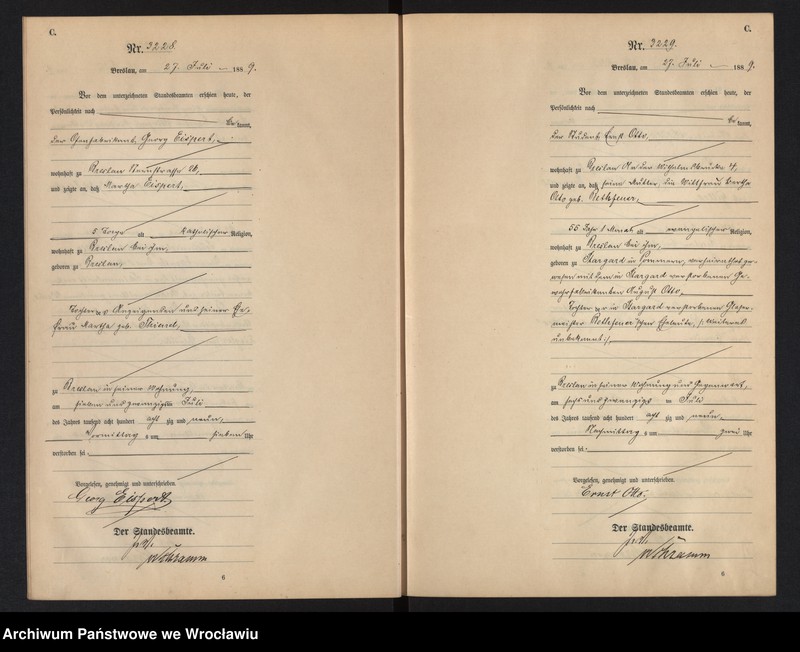 C.
Nr. 3228.
Breslau, am 27. Juli 1889.
Vor dem unterzeichneten Standesbeamten erschien heute, der
Persönlichkeit nach
bekannt,
der Ofenfabrikant, Georg Eispert,
wohnhaft zu Breslau
und zeigte an, daß Martha Eispert,
5 Tage alt katholischer Religion,
wohnhaft zu Breslau bei ihm,
geboren zu Breslau,
Tochter des Anzeigenden und seiner Ehe-
frau Martha geb.
zu Breslau in seiner Wohnung,
am sieben und zwanzigsten Juli
des Jahres tausend acht hundert achtzig und neun,
Vormittag s um sieben Uhr
verstorben sei.
Vorgelesen, genehmigt und unterschrieben
Georg Eispert
Der Standesbeamte.
Schramm
6
C.
Nr. 3229.
Breslau, am 27. Juli 1889.
Vor dem unterzeichneten Standesbeamten erschien heute, der
Persönlichkeit nach
bekannt,
der Student Ernst Otto,
wohnhaft zu Breslau An der Wilhelmsbrücke 4,
und zeigte an, daß seine Mutter, die Wittfrau Bertha
Otto geb. Rethfener,
55 Jahr 1 Monat alt evangelischer Religion,
wohnhaft zu Breslau bei ihm,
geboren zu Stargard in Pommern, verheirathet ge-
wesen mit dem in Stargard verstorbenen Ge-
wehrfabrikanten August Otto,
Tochter der in Stargard verstorbenen Glaser-
meister Rethfener'schen Eheleute, /: Weiteres
unbekannt :/,
zu Breslau in seiner Wohnung und Gegenwart,
am sechs und zwanzigsten Juli
des Jahres tausend acht hundert achtzig und neun
Nachmittag s um zwei Uhr
verstorben sei.
Vorgelesen, genehmigt und unterschrieben
Ernst Otto.
Der Standesbeamte.
Schramm
6
Archiwum Państwowe we Wrocławiu